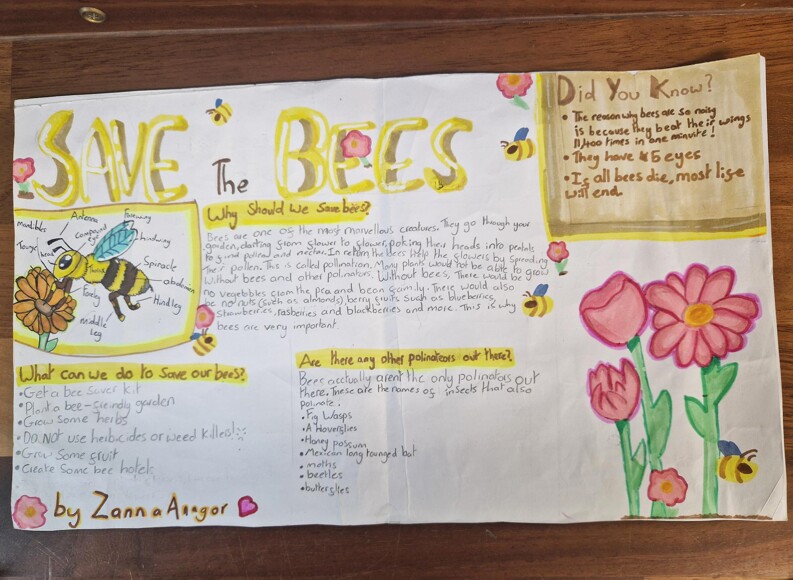 SAVE The BEES
Did You Know?
• The reason why bees are so noisy
is because they beat their wings
11,400 times in one minute!
• They have 5 eyes
• If all bees die, most life
will end
mandibles
Antenna
Compound
eye
Forewing
hindwing
head
Thorax
Spiracle
abdomen
Foreleg
Hindleg
middle
Leg
Why Should We Save bees?
Bees are one of the most marvellous creatures. They go through your
garden, darting from flower to flower, poking their heads into petals
to find pollen and nectar. In return the bees help the flowers by spreading
their pollen. This is called pollination. Many plants would not be able to grow
without bees and other polinators. Without bees, There would be
no vegetables from the pea and bean family. There would also
be no nuts (such as almonds), berry fruits such as blueberries,
Strawberries, rasberries and blackberries and more. This is why
bees are very important.
What can we do to save our bees?
• Get a bee saver kit
• Plant a bee-friendly garden
• Grow some herbs
• Do NOT use herbicides or weed killer!
• Grow some fruit
• Create some bee hotels
Are there any other polinators out there?
Bees acctually aren't the only polinators out
there. These are the names of insects that also
polinate:
• Fig Wasps
• Hoverflies
• Honey possum
• Mexican long tounged bat
• moths
• beetles
• butterflies
by Zanna